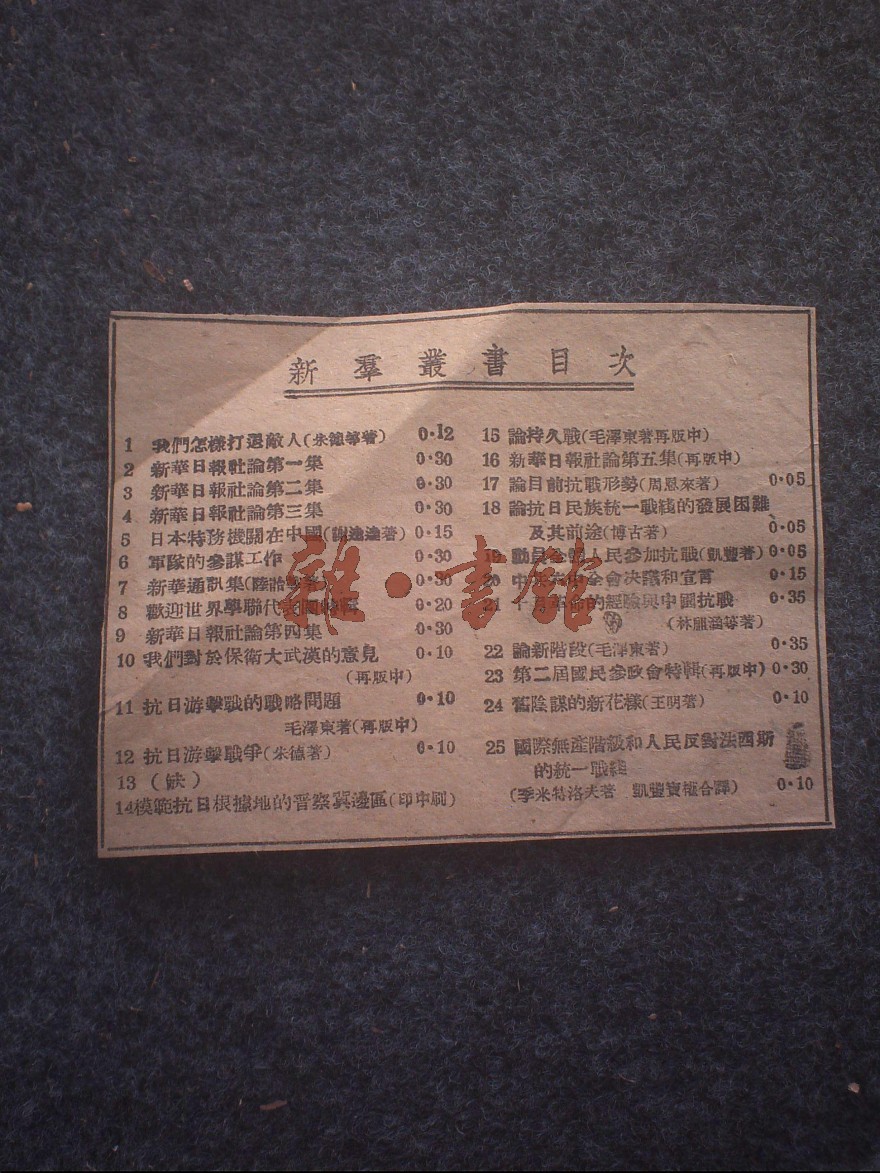 新羣叢書目次
1 我們怎樣打退敵人(朱德等著) 0·12
2 新華日報社論第一集 0·30
3 新華日報社論第二集 0·30
4 新華日報社論第三集 0·30
5 日本特務機關在中國(謝遠達著) 0·15
6 軍隊的參謀工作 0·30
7 新華通訊集(陸詒等著) 0·30
8 歡迎世界學聯代表團特輯 0·20
9 新華日報社論第四集 0·30
10 我們對於保衛大武漢的意見 0·10
(再版中)
11 抗日游擊戰的戰略問題 0·10
毛澤東著(再版中)
12 抗日游擊戰爭(朱德著) 0·10
13 (缺)
14模範抗日根據地的晋察冀邊區(印中刷)
15 論持久戰(毛澤東著再版中)
16 新華日報社論第五集(再版中)
17 論目前抗戰形勢(周恩來著) 0·05
18 論抗日民族統一戰綫的發展困難
及其前途(博古著) 0·05
19 動員全體人民參加抗戰(凱豐著) 0·05
20 中共六中全會决議和宣言 0·15
21 十月革命的經驗與中國抗戰 0·35
(林祖涵等著)
22 論新階段(毛澤東著) 0·35
23 第二屆國民參政會特輯(再版中) 0·30
24 舊陰謀的新花樣(王明著) 0·10
25 國際無產階級和人民反對法西斯
的統一戰綫
(季米特洛夫著 凱豐寶權合譯) 0·10
雜·書館